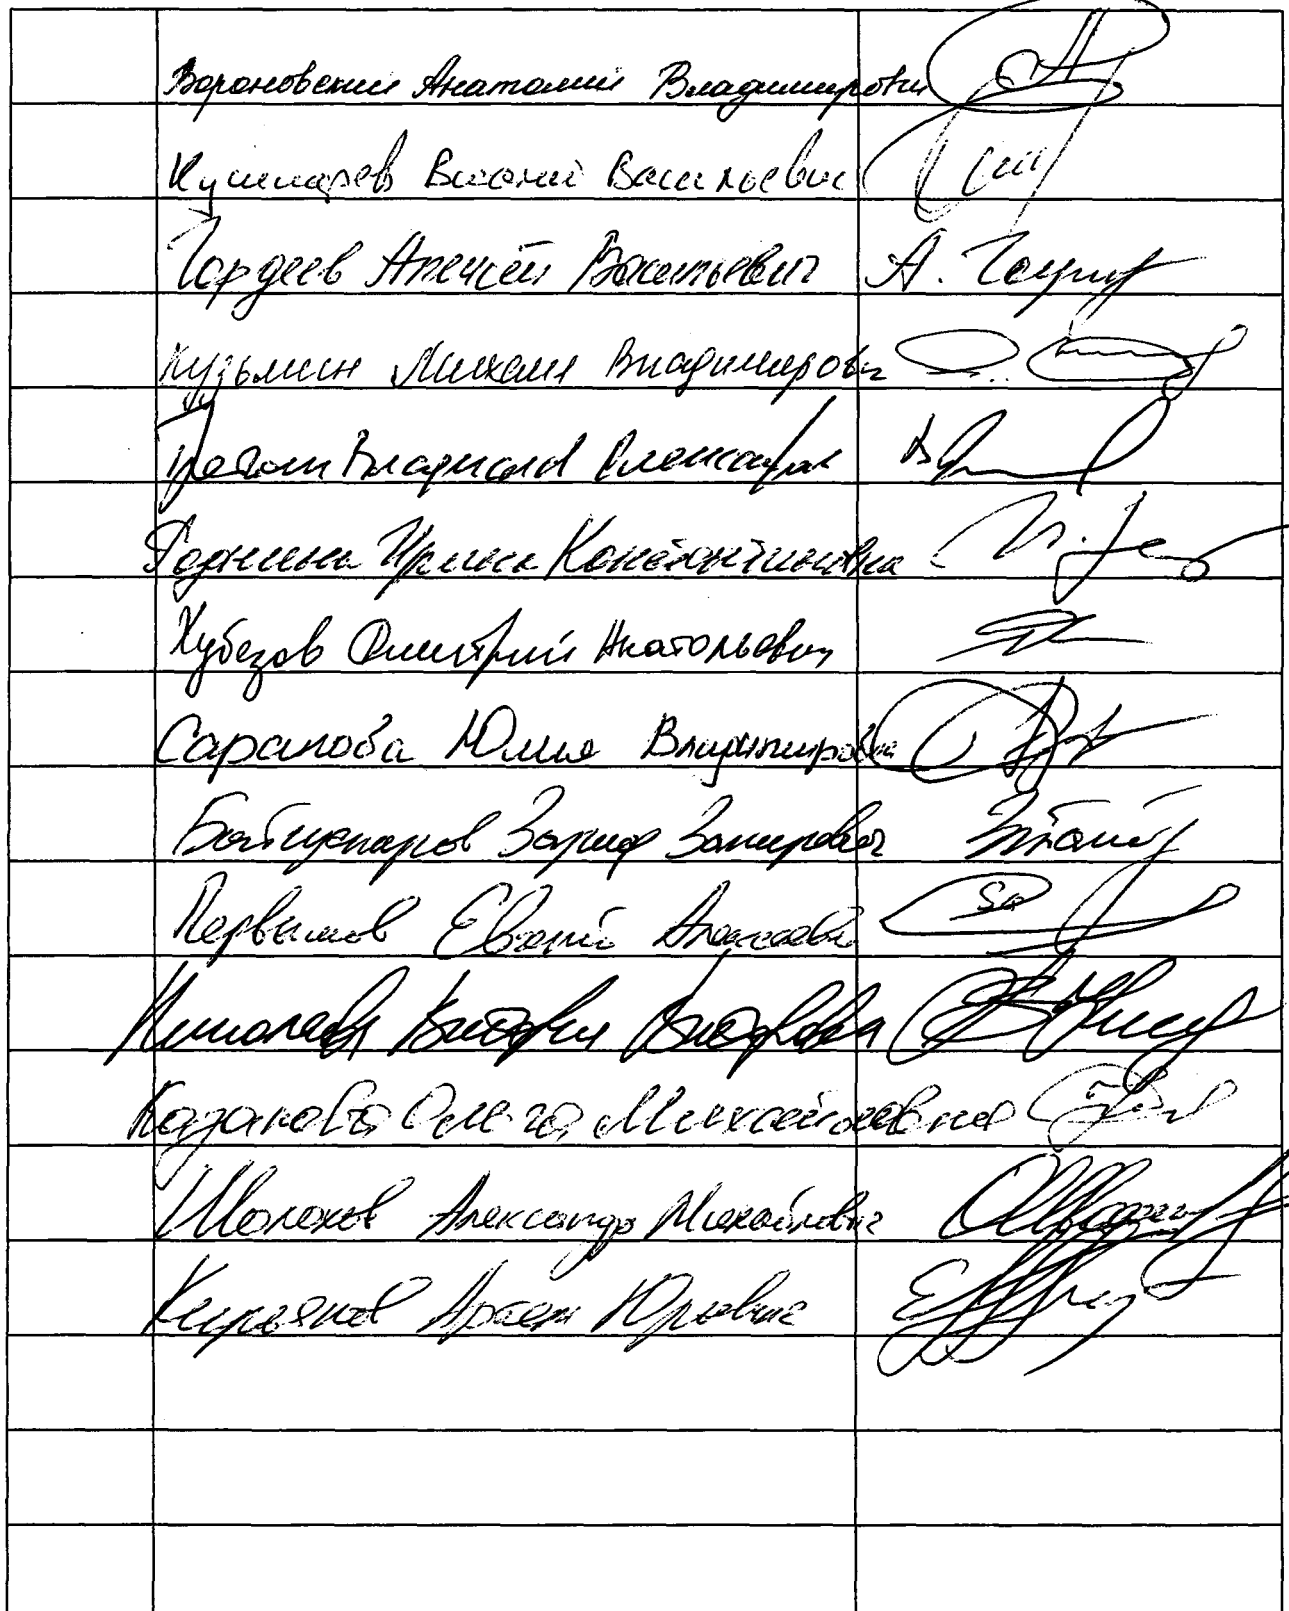 Вороновский Анатолий Владимирович
Кушнарев Виталий Васильевич
Гордеев Алексей Васильевич А. Гордеев
Кузьмин Михаил Владимирович
Третьяк Владислав Александр
Роднина Ирина Константиновна
Хубезов Дмитрий Анатольевич
Сарапова Юлия Владимировна
Байгускаров Зариф Закирович
Первышов Евгений Алексеевич
Николаева Виктория Викторовна
Казакова Ольга Михайловна
Шолохов Александр Михайлович
Кирьянов Артем Юрьевич